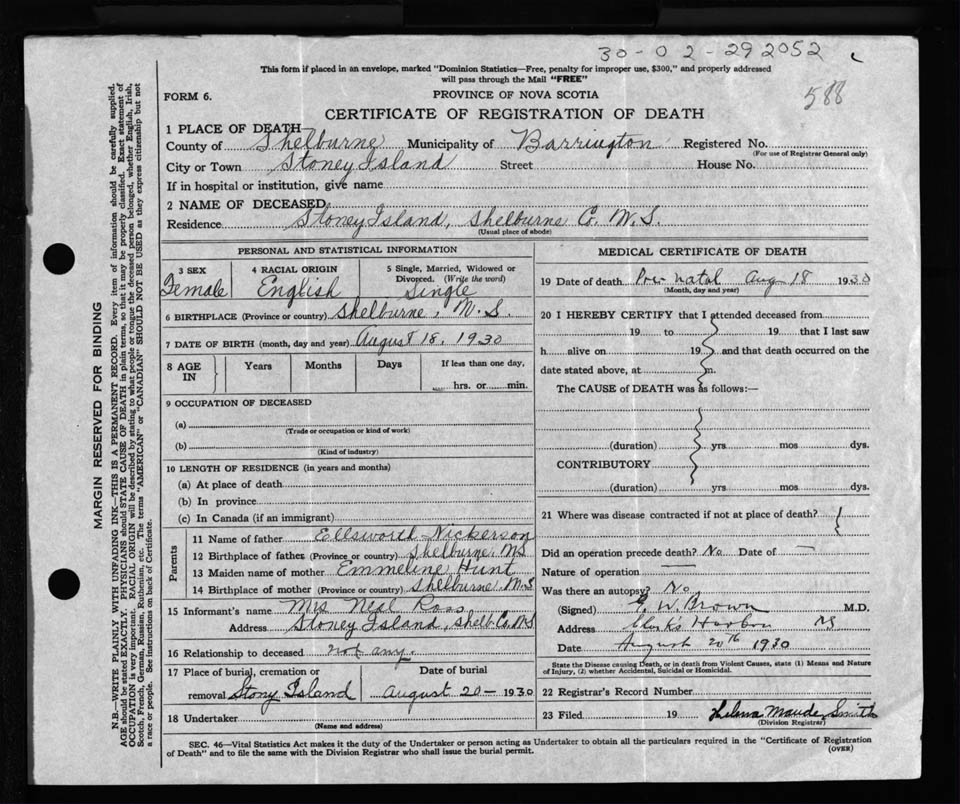 30-02-292052
This form if placed in an envelope, marked "Dominion Statistics—Free, penalty for improper use, $300," and properly addressed
will pass through the Mail "FREE"
588
FORM 6.
PROVINCE OF NOVA SCOTIA
CERTIFICATE OF REGISTRATION OF DEATH
1 PLACE OF DEATH
County of Shelburne Municipality of Barrington Registered No.
(For use of Registrar General only)
City or Town Stoney Island Street House No.
If in hospital or institution, give name
2 NAME OF DECEASED
Residence Stoney Island, Shelburne Co. N.S.
(Usual place of abode)
PERSONAL AND STATISTICAL INFORMATION
3 SEX
Female
4 RACIAL ORIGIN
English
5 Single, Married, Widowed or
Divorced. (Write the word)
Single
6 BIRTHPLACE (Province or country) Shelburne, N.S.
7 DATE OF BIRTH (month, day and year) August 18, 1930
8 AGE
IN
Years
Months
Days
If less than one day,
hrs. or min.
9 OCCUPATION OF DECEASED
(a)
(Trade or occupation or kind of work)
(b)
(Kind of industry)
10 LENGTH OF RESIDENCE (in years and months)
(a) At place of death
(b) In province
(c) In Canada (if an immigrant)
Parents
11 Name of father Ellsworth Nickerson
12 Birthplace of father (Province or country) Shelburne NS
13 Maiden name of mother Emmeline Hunt
14 Birthplace of mother (Province or country) Shelburne N.S
15 Informant's name Mrs Neal Ross
Address Stoney Island, Shelb. Co. NS
16 Relationship to deceased not any.
17 Place of burial, cremation or
removal Stony Island
Date of burial
August 20 - 1930
18 Undertaker
(Name and address)
MEDICAL CERTIFICATE OF DEATH
19 Date of death Pre natal Aug 18 1930
(Month, day and year)
20 I HEREBY CERTIFY that I attended deceased from
19 to 19 that I last saw
h alive on 19 and that death occurred on the
date stated above, at m.
The CAUSE of DEATH was as follows:—
(duration) yrs mos dys.
CONTRIBUTORY
(duration) yrs mos dys.
21 Where was disease contracted if not at place of death?
Did an operation precede death? No Date of —
Nature of operation —
Was there an autopsy? No
(Signed) W. Brown M.D.
Address Clark's Harbor NS
Date August 20th 1930
State the Disease causing Death, or in death from Violent Causes, state (1) Means and Nature
of Injury, (2) whether Accidental, Suicidal or Homicidal.
22 Registrar's Record Number
23 Filed 19 Thelma Maude Smith
(Division Registrar)
SEC. 46—Vital Statistics Act makes it the duty of the Undertaker or person acting as Undertaker to obtain all the particulars required in the "Certificate of Registration
of Death" and to file the same with the Division Registrar who shall issue the burial permit.
(OVER)
MARGIN RESERVED FOR BINDING
N.B.—WRITE PLAINLY WITH UNFADING INK—THIS IS A PERMANENT RECORD. Every item of information should be carefully supplied.
AGE should be stated EXACTLY. PHYSICIANS should STATE CAUSE OF DEATH in plain terms, so that it may be properly classified. Exact statement of
OCCUPATION is very important. RACIAL ORIGIN will be described by stating to what people or tongue the deceased person belonged, whether English, Irish,
Scotch, French, German, Russian, Ruthenian, etc. The terms "AMERICAN" or "CANADIAN" SHOULD NOT BE USED as they express citizenship but not
a race or people. See instructions on back of Certificate.